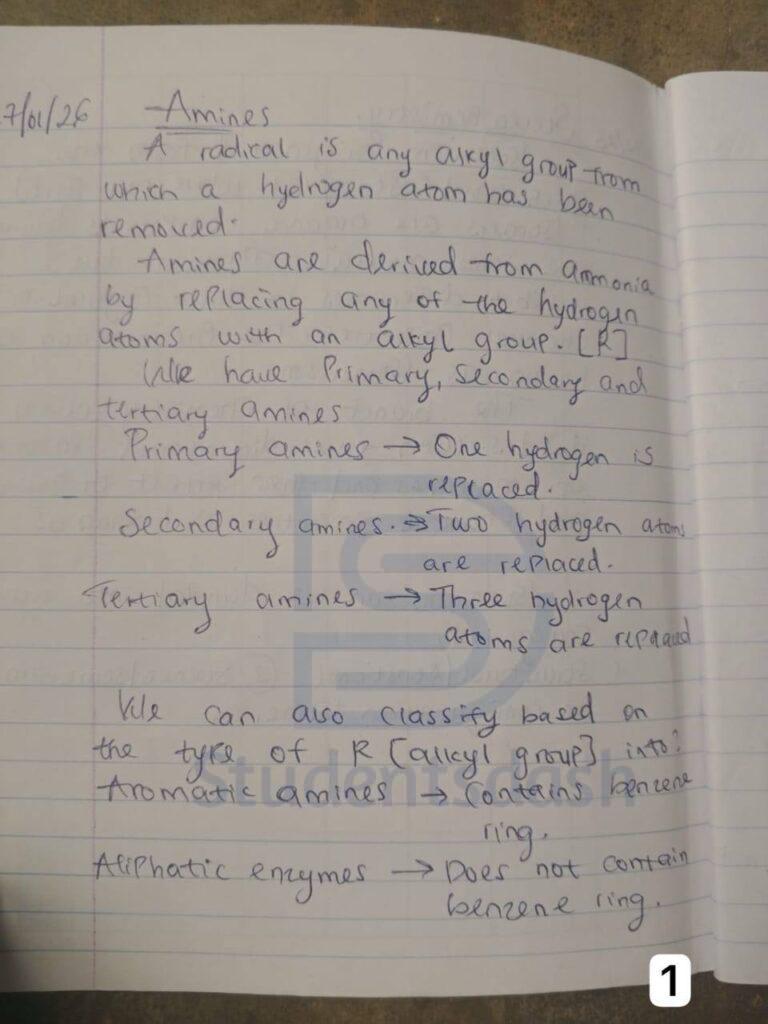 7/01/26 Amines
A radical is any alkyl group from
which a hydrogen atom has been
removed.
Amines are derived from ammonia
by replacing any of the hydrogen
atoms with an alkyl group. [R]
We have Primary, Secondary and
tertiary amines
Primary amines → One hydrogen is
replaced.
Secondary amines. → Two hydrogen atoms
are replaced.
Tertiary amines → Three hydrogen
atoms are replaced
We can also classify based on
the type of R [alkyl group] into:
Aromatic amines → Contains benzene
ring.
Aliphatic enzymes → Does not contain
benzene ring.
Studentsdash
1